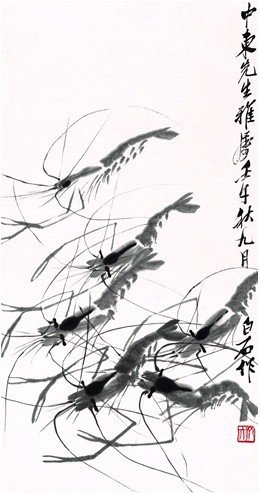 中东先生雅属壬午秋九月
白石作